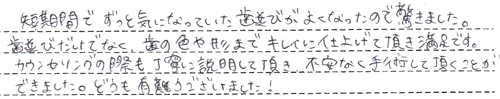 短期間でずっと気になっていた歯並びがよくなったので驚きました。
歯並びだけでなく、歯の色や形までキレイに仕上げて頂き満足です。
カウンセリングの際も丁寧に説明して頂き、不安なく手術して頂くことが
できました。どうも有難うございました!